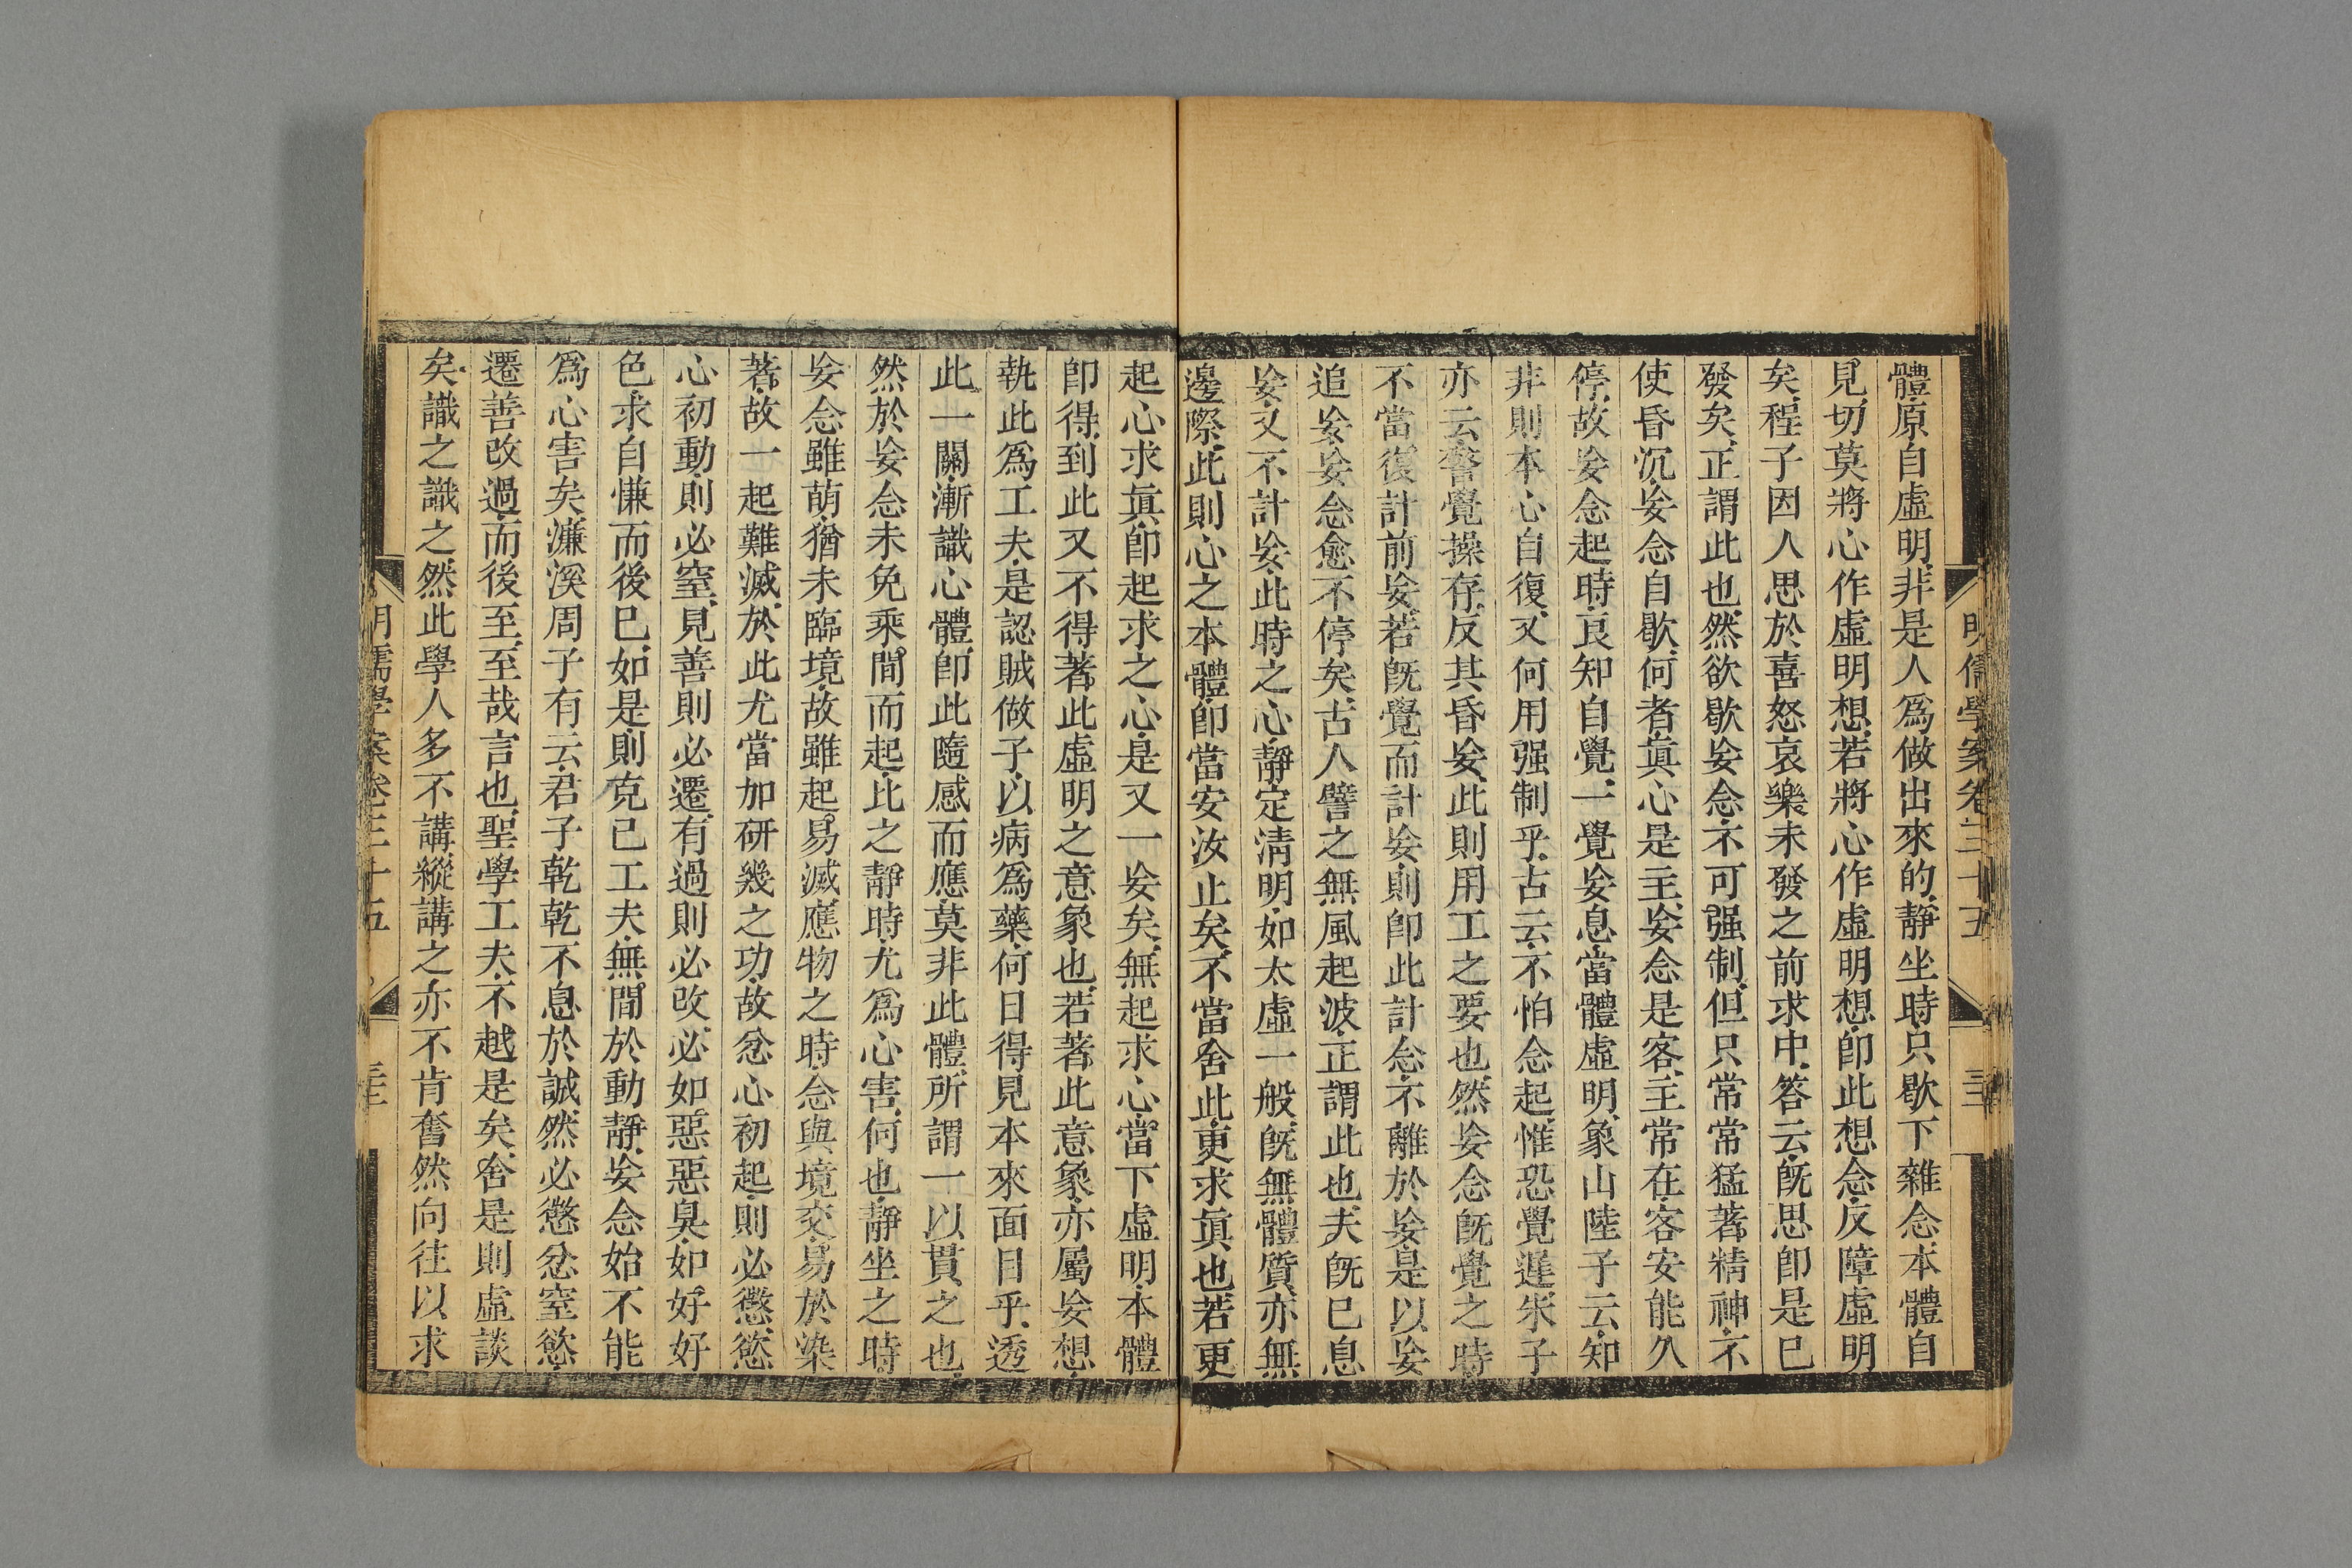 明儒學案卷三十五
體原自虛明非是人爲做出來的靜坐時只歇下雜念本體自
見切莫將心作虛明想若將心作虛明想卽此想念反障虛明
矣程子因人思於喜怒哀樂未發之前求中答云旣思卽是已
發矣正謂此也然欲歇妄念不可强制但只常常猛著精神不
使昏沉妄念自歇何者眞心是主妄念是客主常在客安能久
停故妄念起時良知自覺一覺妄息當體虛明象山陸子云知
非則本心自復又何用强制乎古云不怕念起惟恐覺遲朱子
亦云警覺操存反其昏妄此則用工之要也然妄念旣覺之時
不當復計前妄若旣覺而計妄則卽此計念不離於妄是以妄
追妄妄念愈不停矣古人譬之無風起波正謂此也夫旣已息
妄又不計妄此時之心靜定淸明如太虛一般旣無體質亦無
邊際此則心之本體卽當安汝止矣不當舍此更求眞也若更
起心求眞卽起求之心是又一妄矣無起求心當下虛明本體
卽得到此又不得著此虛明之意象也若著此意象亦屬妄想
執此爲工夫是認賊做子以病爲藥何日得見本來面目乎透
此一關漸識心體卽此隨感而應莫非此體所謂一以貫之也
然於妄念未免乘間而起比之靜時尤爲心害何也靜坐之時
妄念雖萌猶未臨境故雖起易滅應物之時念與境交易於染
著故一起難滅於此尤當加研幾之功故忿心初起則必懲慾
心初動則必窒見善則必遷有過則必改必如惡惡臭如好好
色求自慊而後已如是則克已工夫無間於動靜妄念始不能
爲心害矣濂溪周子有云君子乾乾不息於誠然必懲忿窒慾
遷善改過而後至至哉言也聖學工夫不越是矣舍是則虛談
矣識之識之然此學人多不講縱講之亦不肯奮然向往以求
明儒學案卷三十五